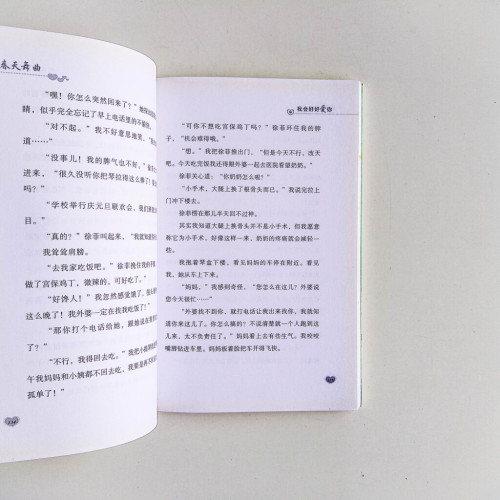 春天舞曲
“嘿！你怎么突然回来了？”她
睛，似乎完全忘记了早上电话里的不愉快。
“对不起。”我不好意思地笑，“我
道……”
“没事儿！我的脾气也不好。”徐菲
进来，“很久没听你把琴拉得这么棒了！
吗？”
“学校举行庆元旦联欢会，我们班
目。”
“真的？”徐菲叫起来，“我就知道
我耸耸肩膀。
“去我家吃饭吧。”徐菲挽住我的
做了宫保鸡丁，微辣的，可好吃了。”
“好馋人！”我忽然感觉饿了，
这么晚了！我外婆一定在找我吃饭了！”
“那你打个电话给她，跟她说在我
了？”
“不行，我得回去吃。”我把小提琴
午我妈妈和小姨都不回去吃，我要是再不
孤单了！”
我会好好爱你
“可你不想吃宫保鸡丁吗？”徐菲环住我的脖
子，“机会难得哦。”
“想。”我把徐菲推出门，“但是今天不行，改天
吧。今天吃完饭我还得跟外婆一起去医院看望奶奶。”
徐菲关心道：“你奶奶怎么啦？”
“小手术，大腿上换了根骨头而已。”我说完拉上
门冲下楼去。
徐菲愣在那儿半天回不过神。
其实我知道大腿上换骨头并不是小手术，但我愿意
称它为小手术，好像这样一来，奶奶的疼痛就会减轻一
些。
我抱着琴盒下楼，看见妈妈的车停在附近。看见
我，她从车上下来。
“妈妈，”我感到奇怪，“您怎么在这儿？外婆说
您今天很忙……”
“外婆找不到你，就打电话让我出来找你，我就知
道你来这儿了。你怎么搞的？不说清楚就一个人跑到这
儿来，太不负责任了。”妈妈看上去有些生气。我咬咬
嘴唇钻进车里。妈妈板着脸把车开得飞快。